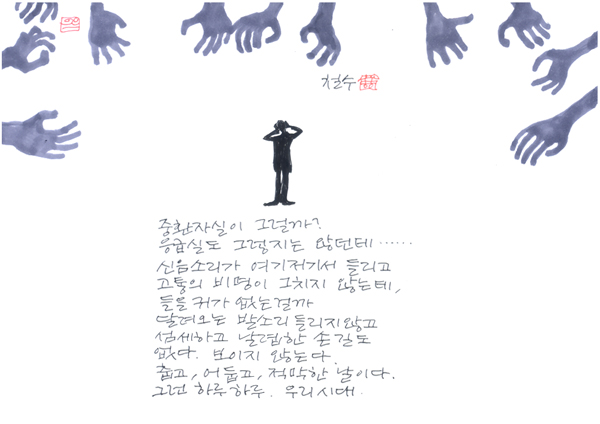 철수
중환자실이 그럴까?
응급실도 그렇지는 않던데……
신음소리가 여기저기서 들리고
고통의 비명이 그치지 않는데,
들을 귀가 없는걸까
달려오는 발소리 들리지않고
섬세하고 날렵한 손길도
없다. 보이지 않는다.
춥고, 어둡고, 적막한 날이다.
그런 하루하루. 우리시대.